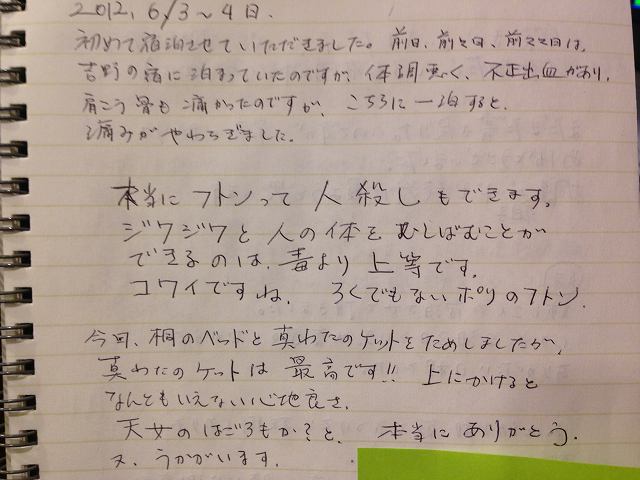 2012, 6/3~4日.
初めて宿泊させていただきました。前日、前々日、前々々日は、
吉野の宿に泊まっていたのですが、体調悪く、不正出血があり、
肩こう骨も痛かったのですが、こちらに一泊すると、
痛みがやわらぎました。
本当にフトンって人殺しもできます。
ジワジワと人の体をむしばむことが
できるのは、毒より上等です。
コワイですね、ろくでもないポリのフトン.
今回、桐のベッドと真わたのケットをためしましたが、
真わたのケットは最高です!!上にかけると
なんともいえない心地良さ、
天女のはごろもかなと、本当にありがとう.
又、うかがいます.